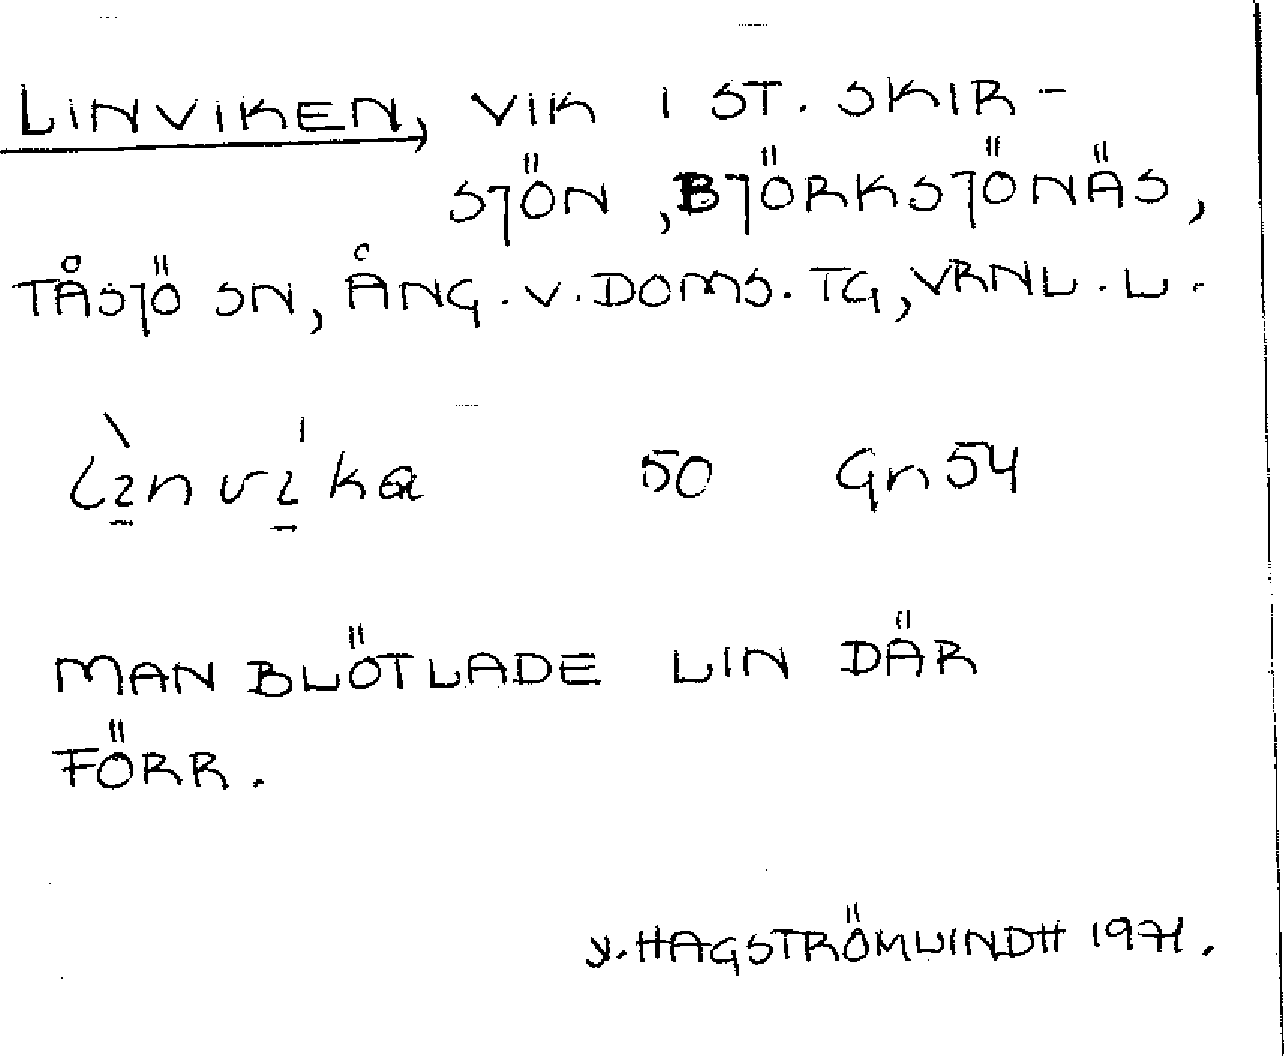 LINVIKEN, VIK I ST. SKIR-
SJÖN, BJÖRKSJÖNÄS,
TÅSJÖ SN, ÅNG. V. DOMS. TG, VRNL. L.
50 Gn 54
MAN BLÖTLADE LIN DÄR
FÖRR.
Y. HAGSTRÖMLINDH 1971.